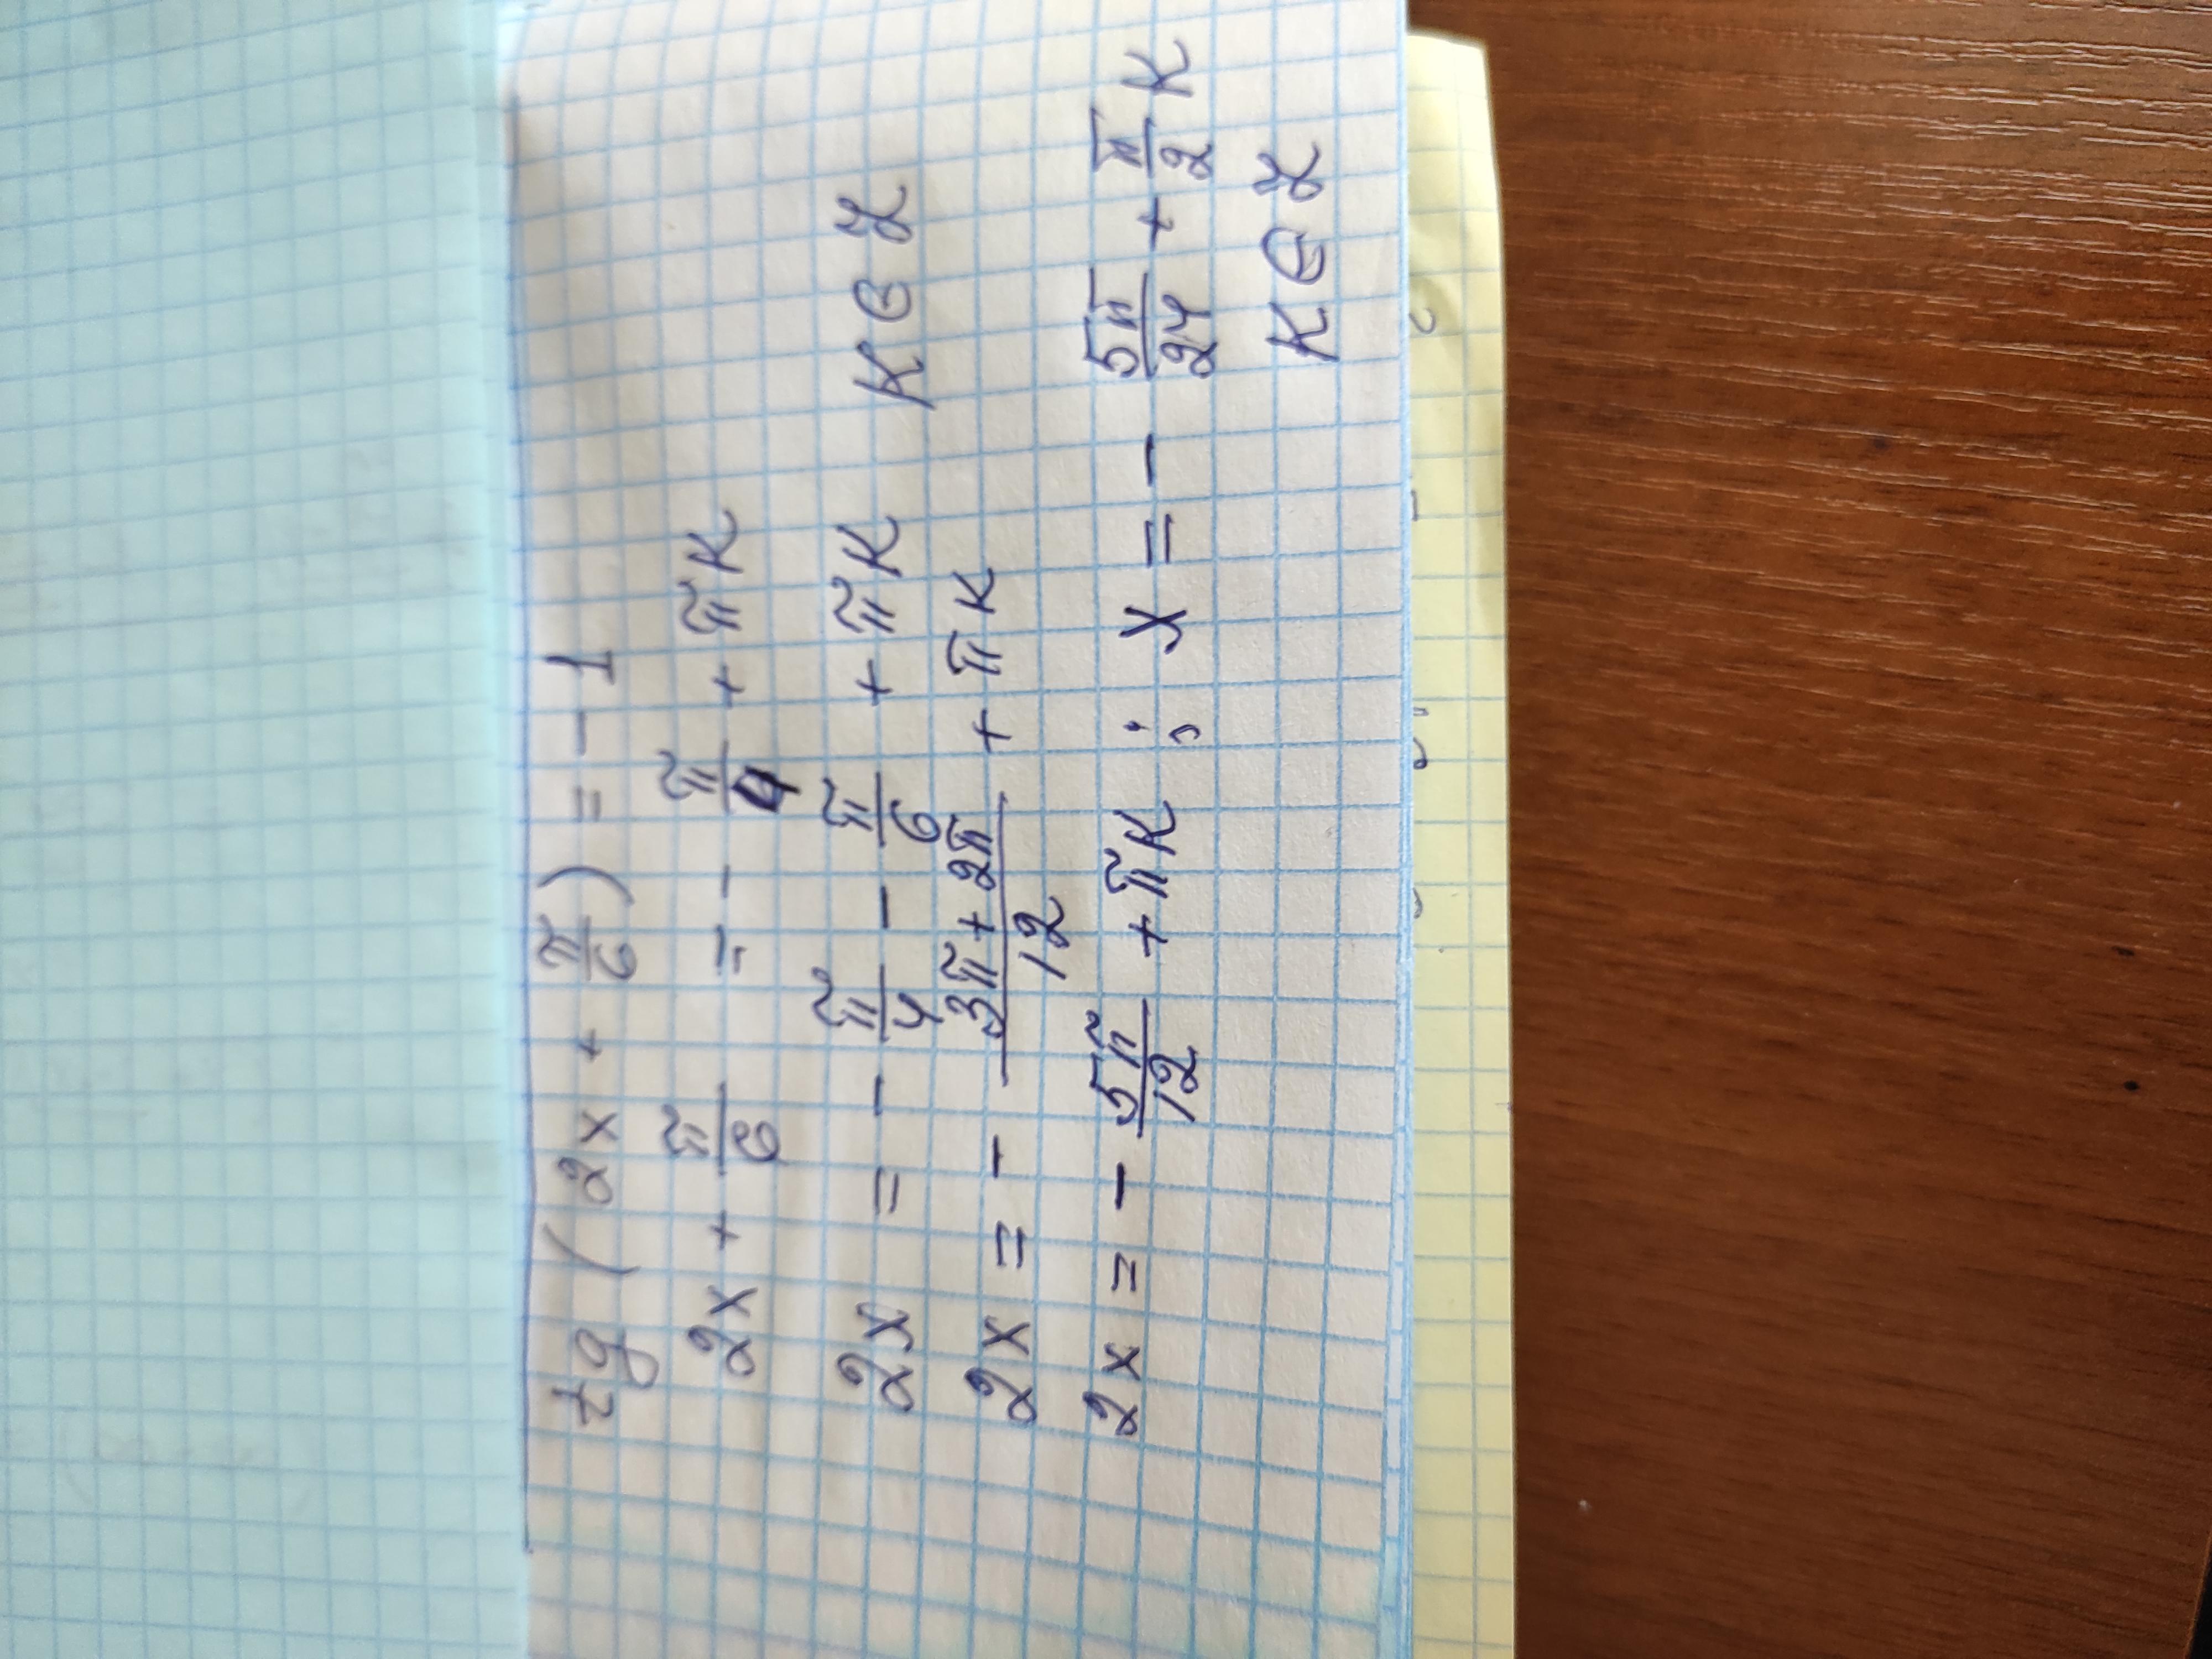 tg (2x + π/6) = -1
2x + π/6 = - π/4 + πk
2x = - π/4 - π/6 + πk k∈Z
2x = - (3π + 2π)/12 + πk
2x = - 5π/12 + πk ; x = - 5π/24 + π/2 k
k∈Z